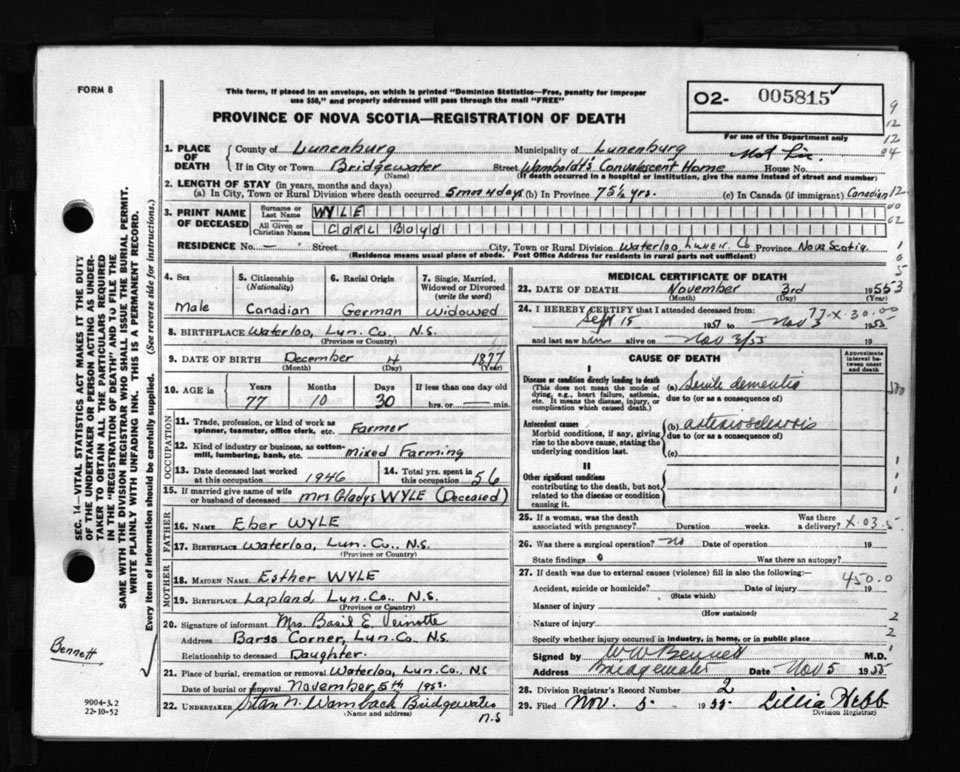 FORM 8
This form, if placed in an envelope, on which is printed "Dominion Statistics—Free, penalty for improper
use $50," and properly addressed will pass through the mail "FREE"
PROVINCE OF NOVA SCOTIA—REGISTRATION OF DEATH
02- 005815
For use of the Department only
9
12
12
04
1. PLACE OF DEATH
County of Lunenburg Municipality of Lunenburg
If in City or Town Bridgewater Street Wamboldt's Convalescent Home House No.
(Name) (If death occurred in a hospital or institution, give the name instead of street and number)
2. LENGTH OF STAY (in years, months and days)
(a) In City, Town or Rural Division where death occurred 5 mos 4 days (b) In Province 75½ yrs. (c) In Canada (if immigrant) Canadian
12
00
02
3. PRINT NAME OF DECEASED
Surname or Last Name WYLE
All Given or Christian Names CARL Boyd
RESIDENCE No. — Street City, Town or Rural Division Waterloo, Lunen. Co Province Nova Scotia
(Residence means usual place of abode. Post Office Address for residents in rural parts not sufficient)
1
0
5
4. Sex
Male
5. Citizenship
(Nationality)
Canadian
6. Racial Origin
German
7. Single, Married, Widowed or Divorced
(write the word)
Widowed
8. BIRTHPLACE Waterloo, Lun. Co., N.S.
(Province or Country)
9. DATE OF BIRTH December 4 1877
(Month) (Day) (Year)
10. AGE in
Years Months Days If less than one day old
77 10 30 hrs. or min.
OCCUPATION
11. Trade, profession, or kind of work as
spinner, teamster, office clerk, etc. Farmer
12. Kind of industry or business, as cotton-
mill, lumbering, bank, etc. Mixed Farming
13. Date deceased last worked
at this occupation 1946
14. Total yrs. spent in
this occupation 56
15. If married give name of wife
or husband of deceased Mrs Gladys WYLE (Deceased)
FATHER
16. NAME Eber WYLE
17. BIRTHPLACE Waterloo, Lun. Co., N.S.
(Province or Country)
MOTHER
18. MAIDEN NAME Esther WYLE
19. BIRTHPLACE Lapland, Lun. Co., N.S.
(Province or Country)
20. Signature of informant Mrs. Basil E. Veinotte
Address Barss Corner, Lun. Co. N.S.
Relationship to deceased Daughter.
21. Place of burial, cremation or removal Waterloo, Lun. Co. N.S
Date of burial or removal November 5th 195
22. UNDERTAKER Stan N. Wambach Bridgewater
N.S
(Name and address)
MEDICAL CERTIFICATE OF DEATH
23. DATE OF DEATH November 3rd 1955
(Month) (Day) (Year)
3
24. I HEREBY CERTIFY that I attended deceased from:
77-X-30.00
Sept 15 1951 to Nov 3 1955
and last saw him alive on Nov 3/55 19
CAUSE OF DEATH
Approximate interval between onset and death
I
Disease or condition directly leading to death
(This does not mean the mode of dying, e.g., heart failure, asthenia, etc. It means the disease, injury, or complication which caused death.)
(a) Senile dementia
due to (or as a consequence of)
Antecedent causes
Morbid conditions, if any, giving rise to the above cause, stating the underlying condition last.
(b) arteriosclerosis
due to (or as a consequence of)
(c)
II
Other significant conditions
contributing to the death, but not related to the disease or condition causing it.
1
1
1
25. If a woman, was the death
associated with pregnancy? Duration weeks. Was there a delivery?
X-03.5
26. Was there a surgical operation? no Date of operation 19
State findings Was there an autopsy?
27. If death was due to external causes (violence) fill in also the following:—
450.0
Accident, suicide or homicide? Date of injury 19
(State which)
Manner of injury
(How sustained)
Nature of injury
2
2
Specify whether injury occurred in industry, in home, or in public place
Signed by W W Bennett M.D.
Address Bridgewater Date Nov 5 1955
28. Division Registrar's Record Number 2
29. Filed Nov. 5. 1955. Lillia Hebb
Division Registrar)
SEC. 14—VITAL STATISTICS ACT MAKES IT THE DUTY
OF THE UNDERTAKER OR PERSON ACTING AS UNDER-
TAKER TO OBTAIN ALL THE PARTICULARS REQUIRED
IN THE "REGISTRATION OF DEATH" AND TO FILE THE
SAME WITH THE DIVISION REGISTRAR WHO SHALL ISSUE THE BURIAL PERMIT.
WRITE PLAINLY WITH UNFADING INK. THIS IS A PERMANENT RECORD.
Every item of information should be carefully supplied. (See reverse side for instructions.)
Bennett
9004-3.2
22-10-52